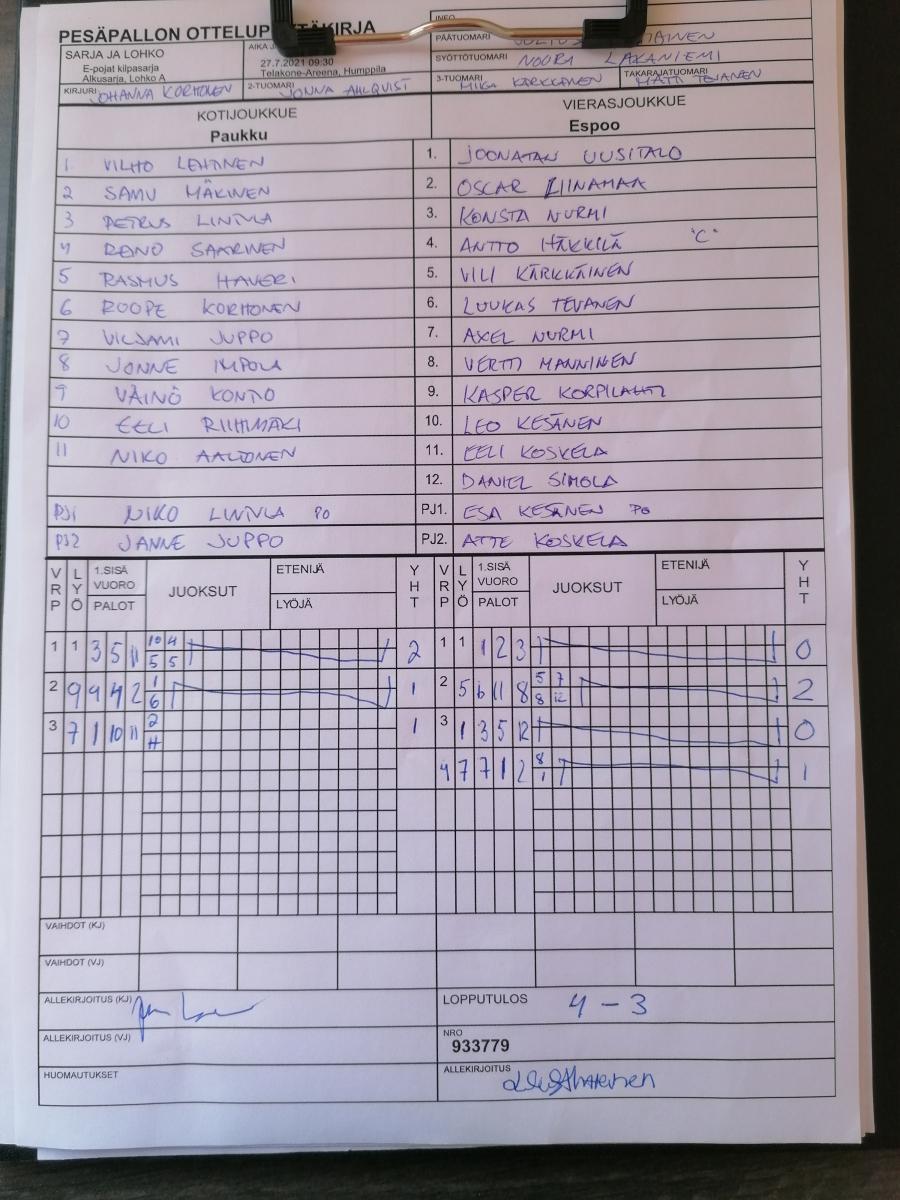 PESÄPALLON OTTELUP TÄKIRJA
SARJA JA LOHKO
E-pojat kilpasarja
Alkusarja, Lohko A
27.7.2021 09:30
Telakone-Areena, Humppila
INFO
PÄÄTUOMARI
SYÖTTÖTUOMARI NOORA LAKANIEMI
KIRJURI JOHANNA KORHONEN 2-TUOMARI JONNA AHLQVIST 3-TUOMARI MIKA KÄRKKÄINEN TAKARAJATUOMARI MATTI TEVANEN
KOTIJOUKKUE VIERASJOUKKUE
Paukku Espoo
1. VILHO LEHTINEN 1. JOONATAN UUSITALO
2 SAMU MÄKINEN 2. OSCAR LIINAMAA
3 PETRUS LINTULA 3. KONSTA NURMI
4 SAARINEN 4. ANTTO HÄKKILÄ "C"
5 RASMUS HAVERI 5. VILI KÄRKKÄINEN
6 ROOPE KORHONEN 6. LUUKAS TEVANEN
7 VILJAMI JUPPO 7. AXEL NURMI
8 JONNE IMPOLA 8. VERTTI MANNINEN
9 VÄINÖ KONTO 9. KASPER KORPILAHTI
10 EELI RIIHIMÄKI 10. LEO KESÄNEN
11 NIKO AALTONEN 11. EELI KOSKELA
12. DANIEL SIMOLA
PJ1 NIKO LINTULA PO PJ1. ESA KESÄNEN PO
PJ2 JANNE JUPPO PJ2. ATTE KOSKELA
VRP LYÖ 1.SISÄ VUORO PALOT JUOKSUT ETENIJÄ LYÖJÄ YHT VRP LYÖ 1.SISÄ VUORO PALOT JUOKSUT ETENIJÄ LYÖJÄ YHT
1 1 3 5 11 10 4 2 1 1 1 2 3 0
5 5
2 9 9 4 2 1 1 2 5 6 11 8 5 7 2
6 8 12
3 7 1 10 11 2 1 3 1 3 5 12 0
H
4 7 7 1 2 8 1
1
VAIHDOT (KJ)
VAIHDOT (VJ)
ALLEKIRJOITUS (KJ) LOPPUTULOS 4 - 3
ALLEKIRJOITUS (VJ) NRO
933779
HUOMAUTUKSET ALLEKIRJOITUS